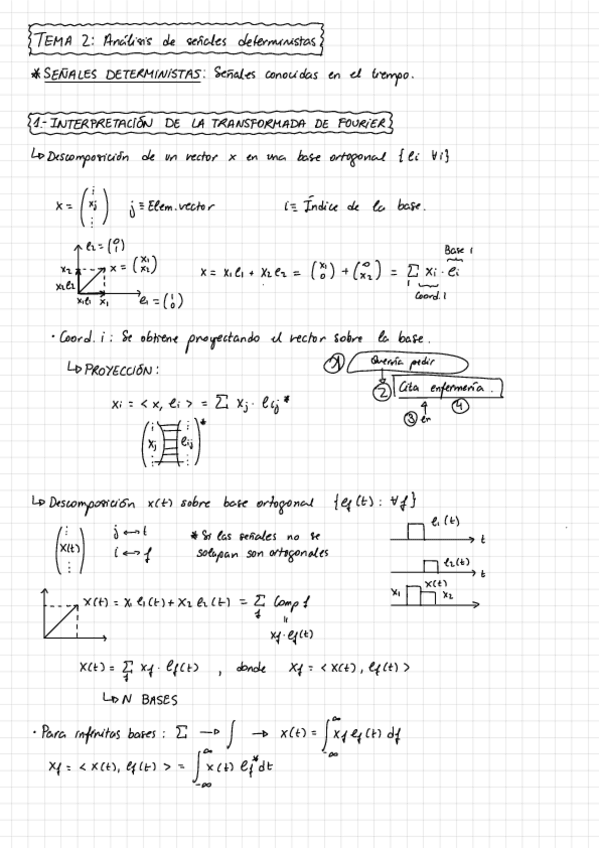 TEMA 2: Análisis de señales deterministas
* SEÑALES DETERMINISTAS: Señales conocidas en el tiempo.
1.- INTERPRETACIÓN DE LA TRANSFORMADA DE FOURIER
↳ Descomposición de un vector x en una base ortogonal {ei ∀i}
x = (⋮ xj ⋮) j ≡ Elem. vector i ≡ Índice de la base.
e2 = (0 1)
x2 x = (x1 x2)
x2e2
x1e1 x1 e1 = (1 0)
x = x1e1 + x2e2 = (x1 0) + (0 x2) = Σi xi · ei
Base i
Coord. i
· Coord. i: Se obtiene proyectando el vector sobre la base.
↳ PROYECCIÓN:
① Querría pedir
② Cita enfermería.
③ er ④
xi = <x, ei> = Σ xj · eij*
(⋮ xj ⋮) (⋮ eij ⋮)*
↳ Descomposición x(t) sobre base ortogonal {ef(t): ∀f}
(⋮ x(t) ⋮) j ↔ t * Si las señales no se
i ↔ f solapan son ortogonales
e1(t)
t
e2(t)
t
x1 x(t) x2
x(t) = x1 e1(t) + x2 e2(t) = Σf Comp f
=
xf · ef(t)
x(t) = Σf xf · ef(t) , donde xf = <x(t), ef(t)>
↳ N BASES
· Para infinitas bases: Σ → ∫ → x(t) = ∫-∞^∞ xf ef(t) df
xf = <x(t), ef(t)> = ∫-∞^∞ x(t) ef* dt